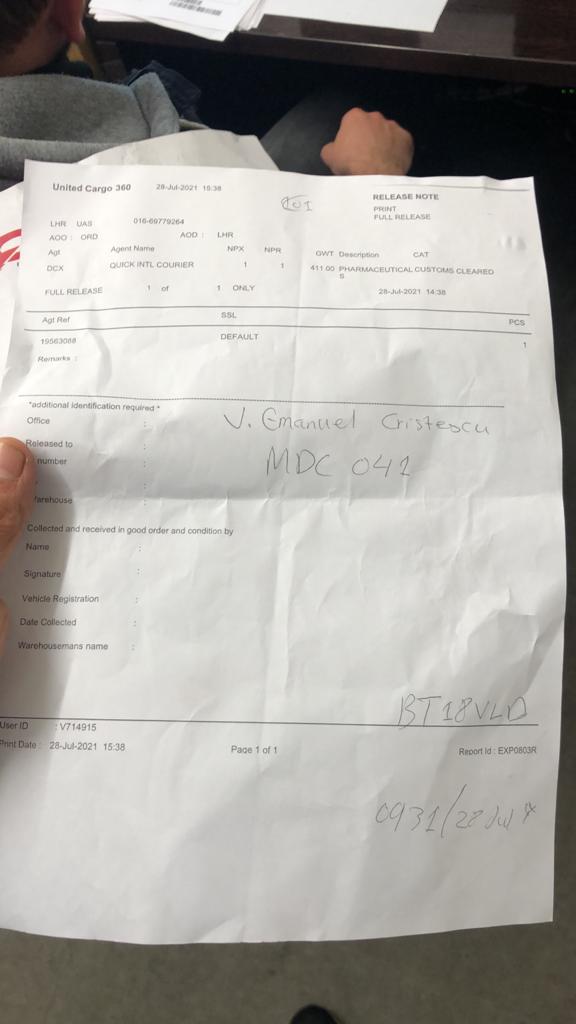 United Cargo 360 28-Jul-2021 15:38
RELEASE NOTE
PRINT
FULL RELEASE
LHR UAS 016-69779264
AOO : ORD AOD : LHR
Agt Agent Name NPX NPR GWT Description CAT
DCX QUICK INTL COURIER 1 1 411.00 PHARMACEUTICAL CUSTOMS CLEARED
S
FULL RELEASE 1 of 1 ONLY 28-Jul-2021 14:38
Agt Ref SSL PCS
19563088 DEFAULT 1
Remarks :
*additional identification required *
Office : V. Emanuel Cristescu
Released to :
number : MDC 041
:
arehouse :
Collected and received in good order and condition by
Name :
Signature :
Vehicle Registration :
Date Collected :
Warehousemans name :
BT18VLD
User ID : V714915
Print Date : 28-Jul-2021 15:38 Page 1 of 1 Report Id : EXP0803R
0931/